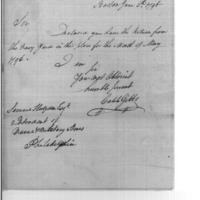 Boston June 1st 1796
Sir
Inclosed you have the Return from
the Navy Yard in this place for the Month of May
1796.
I am
Sir
Your most Obedient
humble Servant
Caleb Gibbs
Samuel Hodgdon Esqr
Intendant of
Naval & Military Stores
Philadelphia